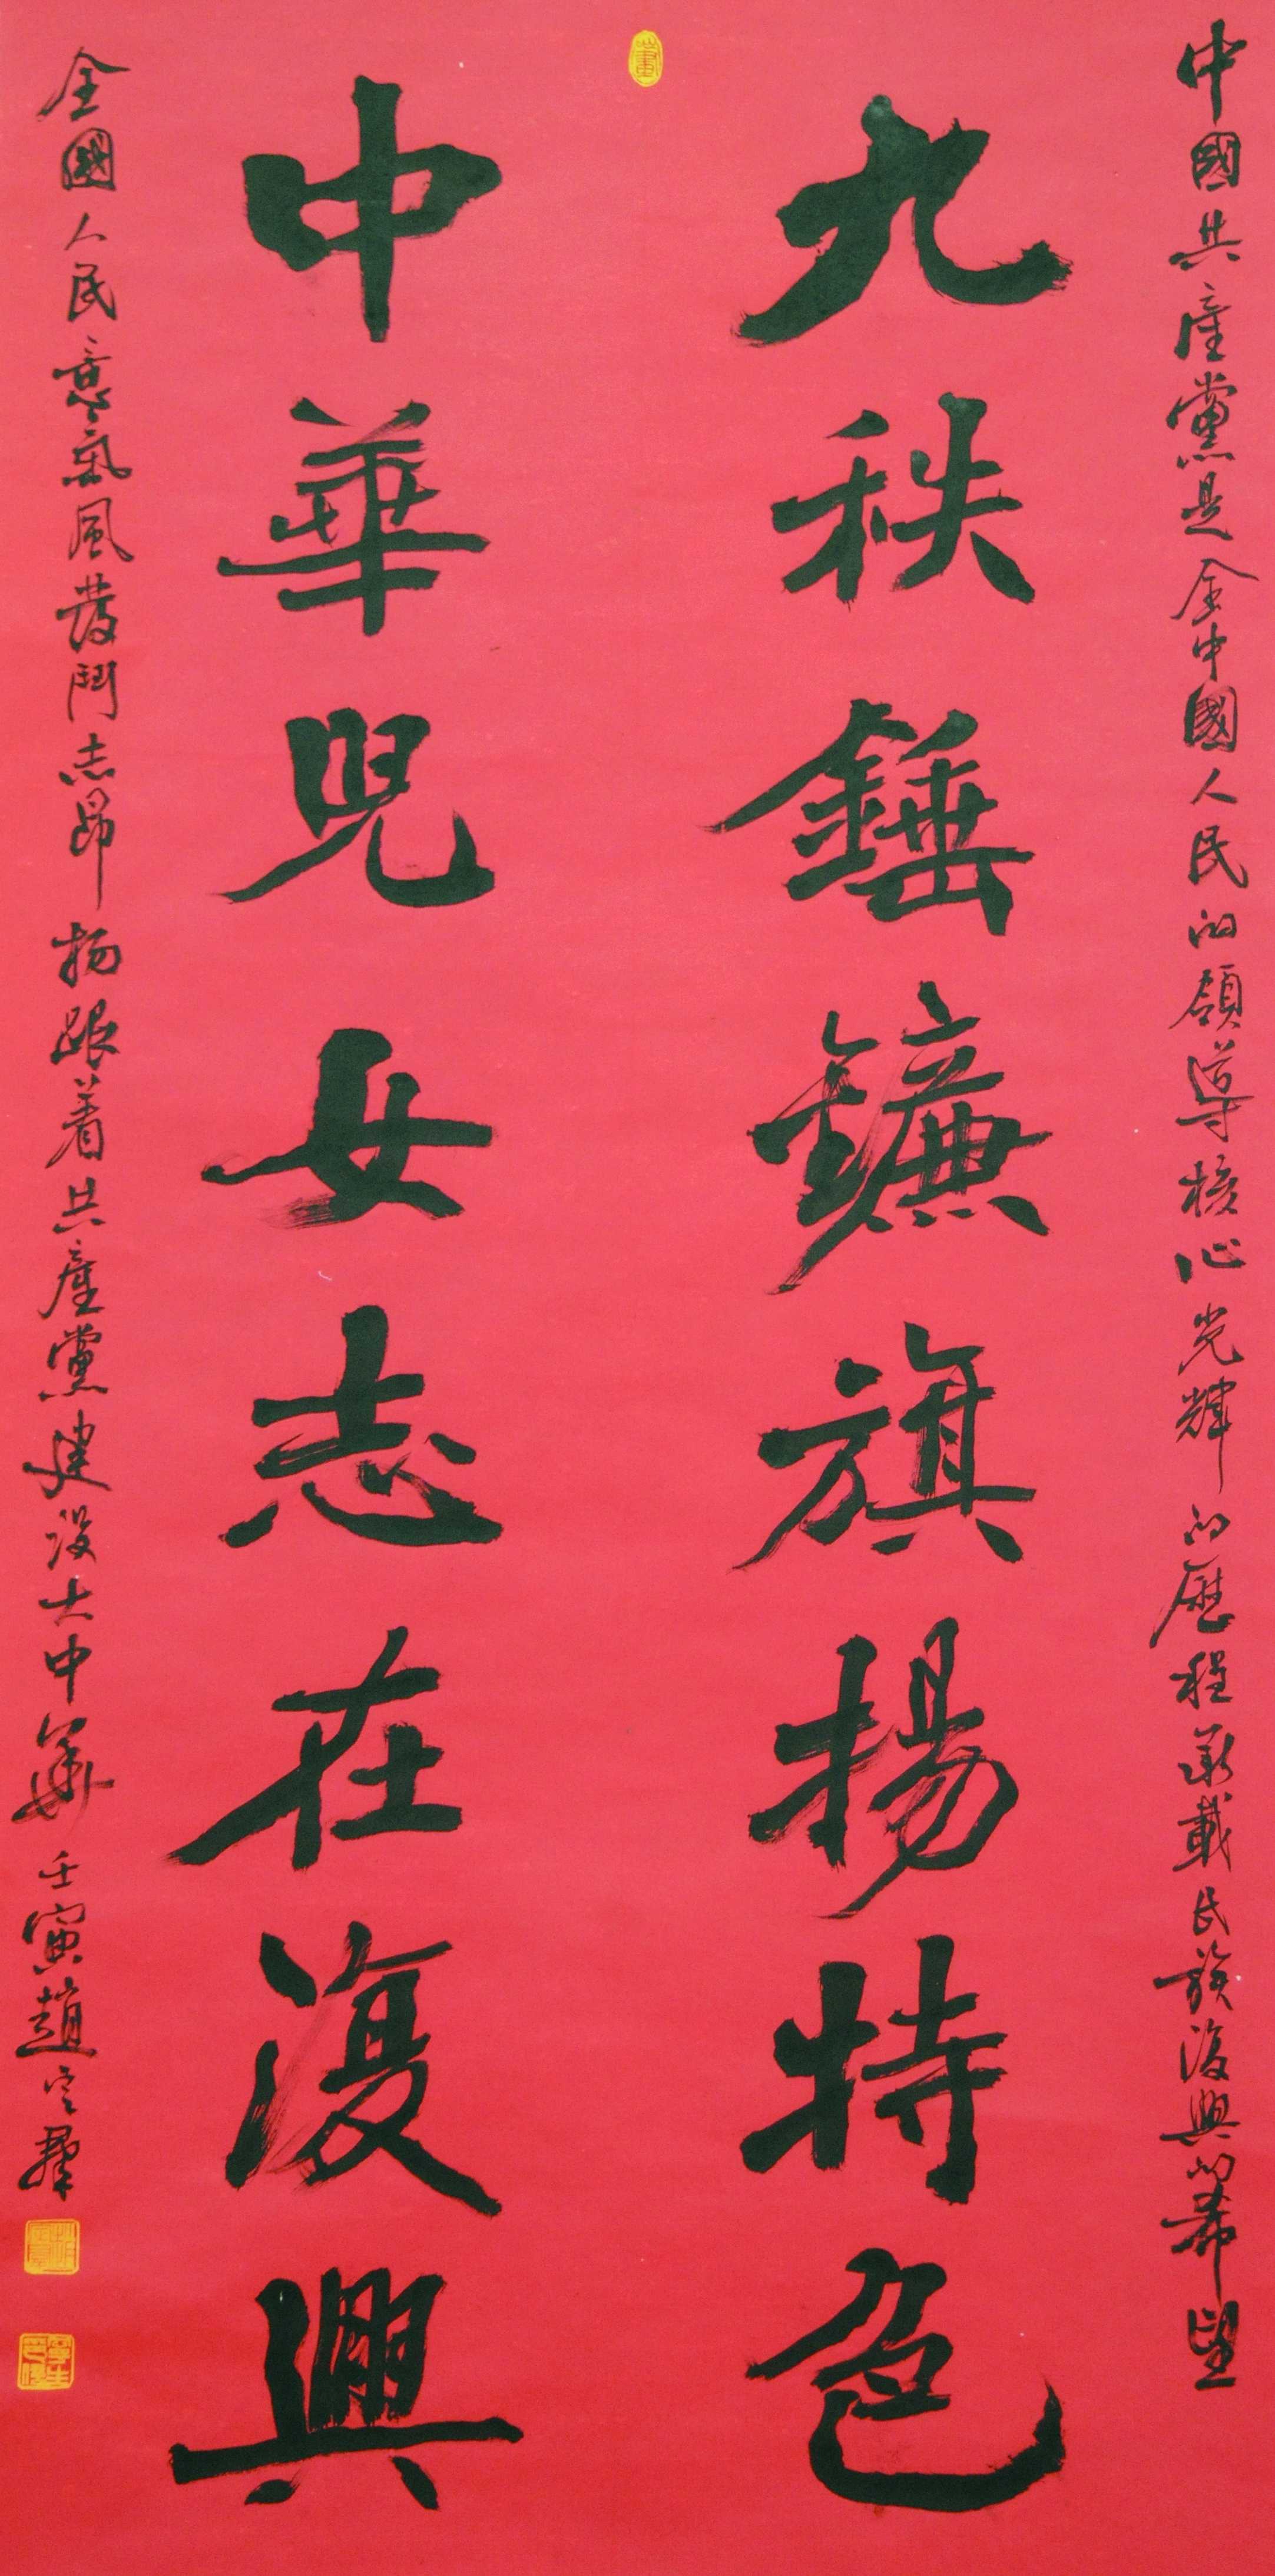 中國共產黨是全中國人民的領導核心光輝的歷程承載民族復興的希望
九秩錘鐮旗揚特色
中華兒女志在復興
全國人民意氣風發鬥志昂揚跟着共產黨建設大中華 壬寅趙